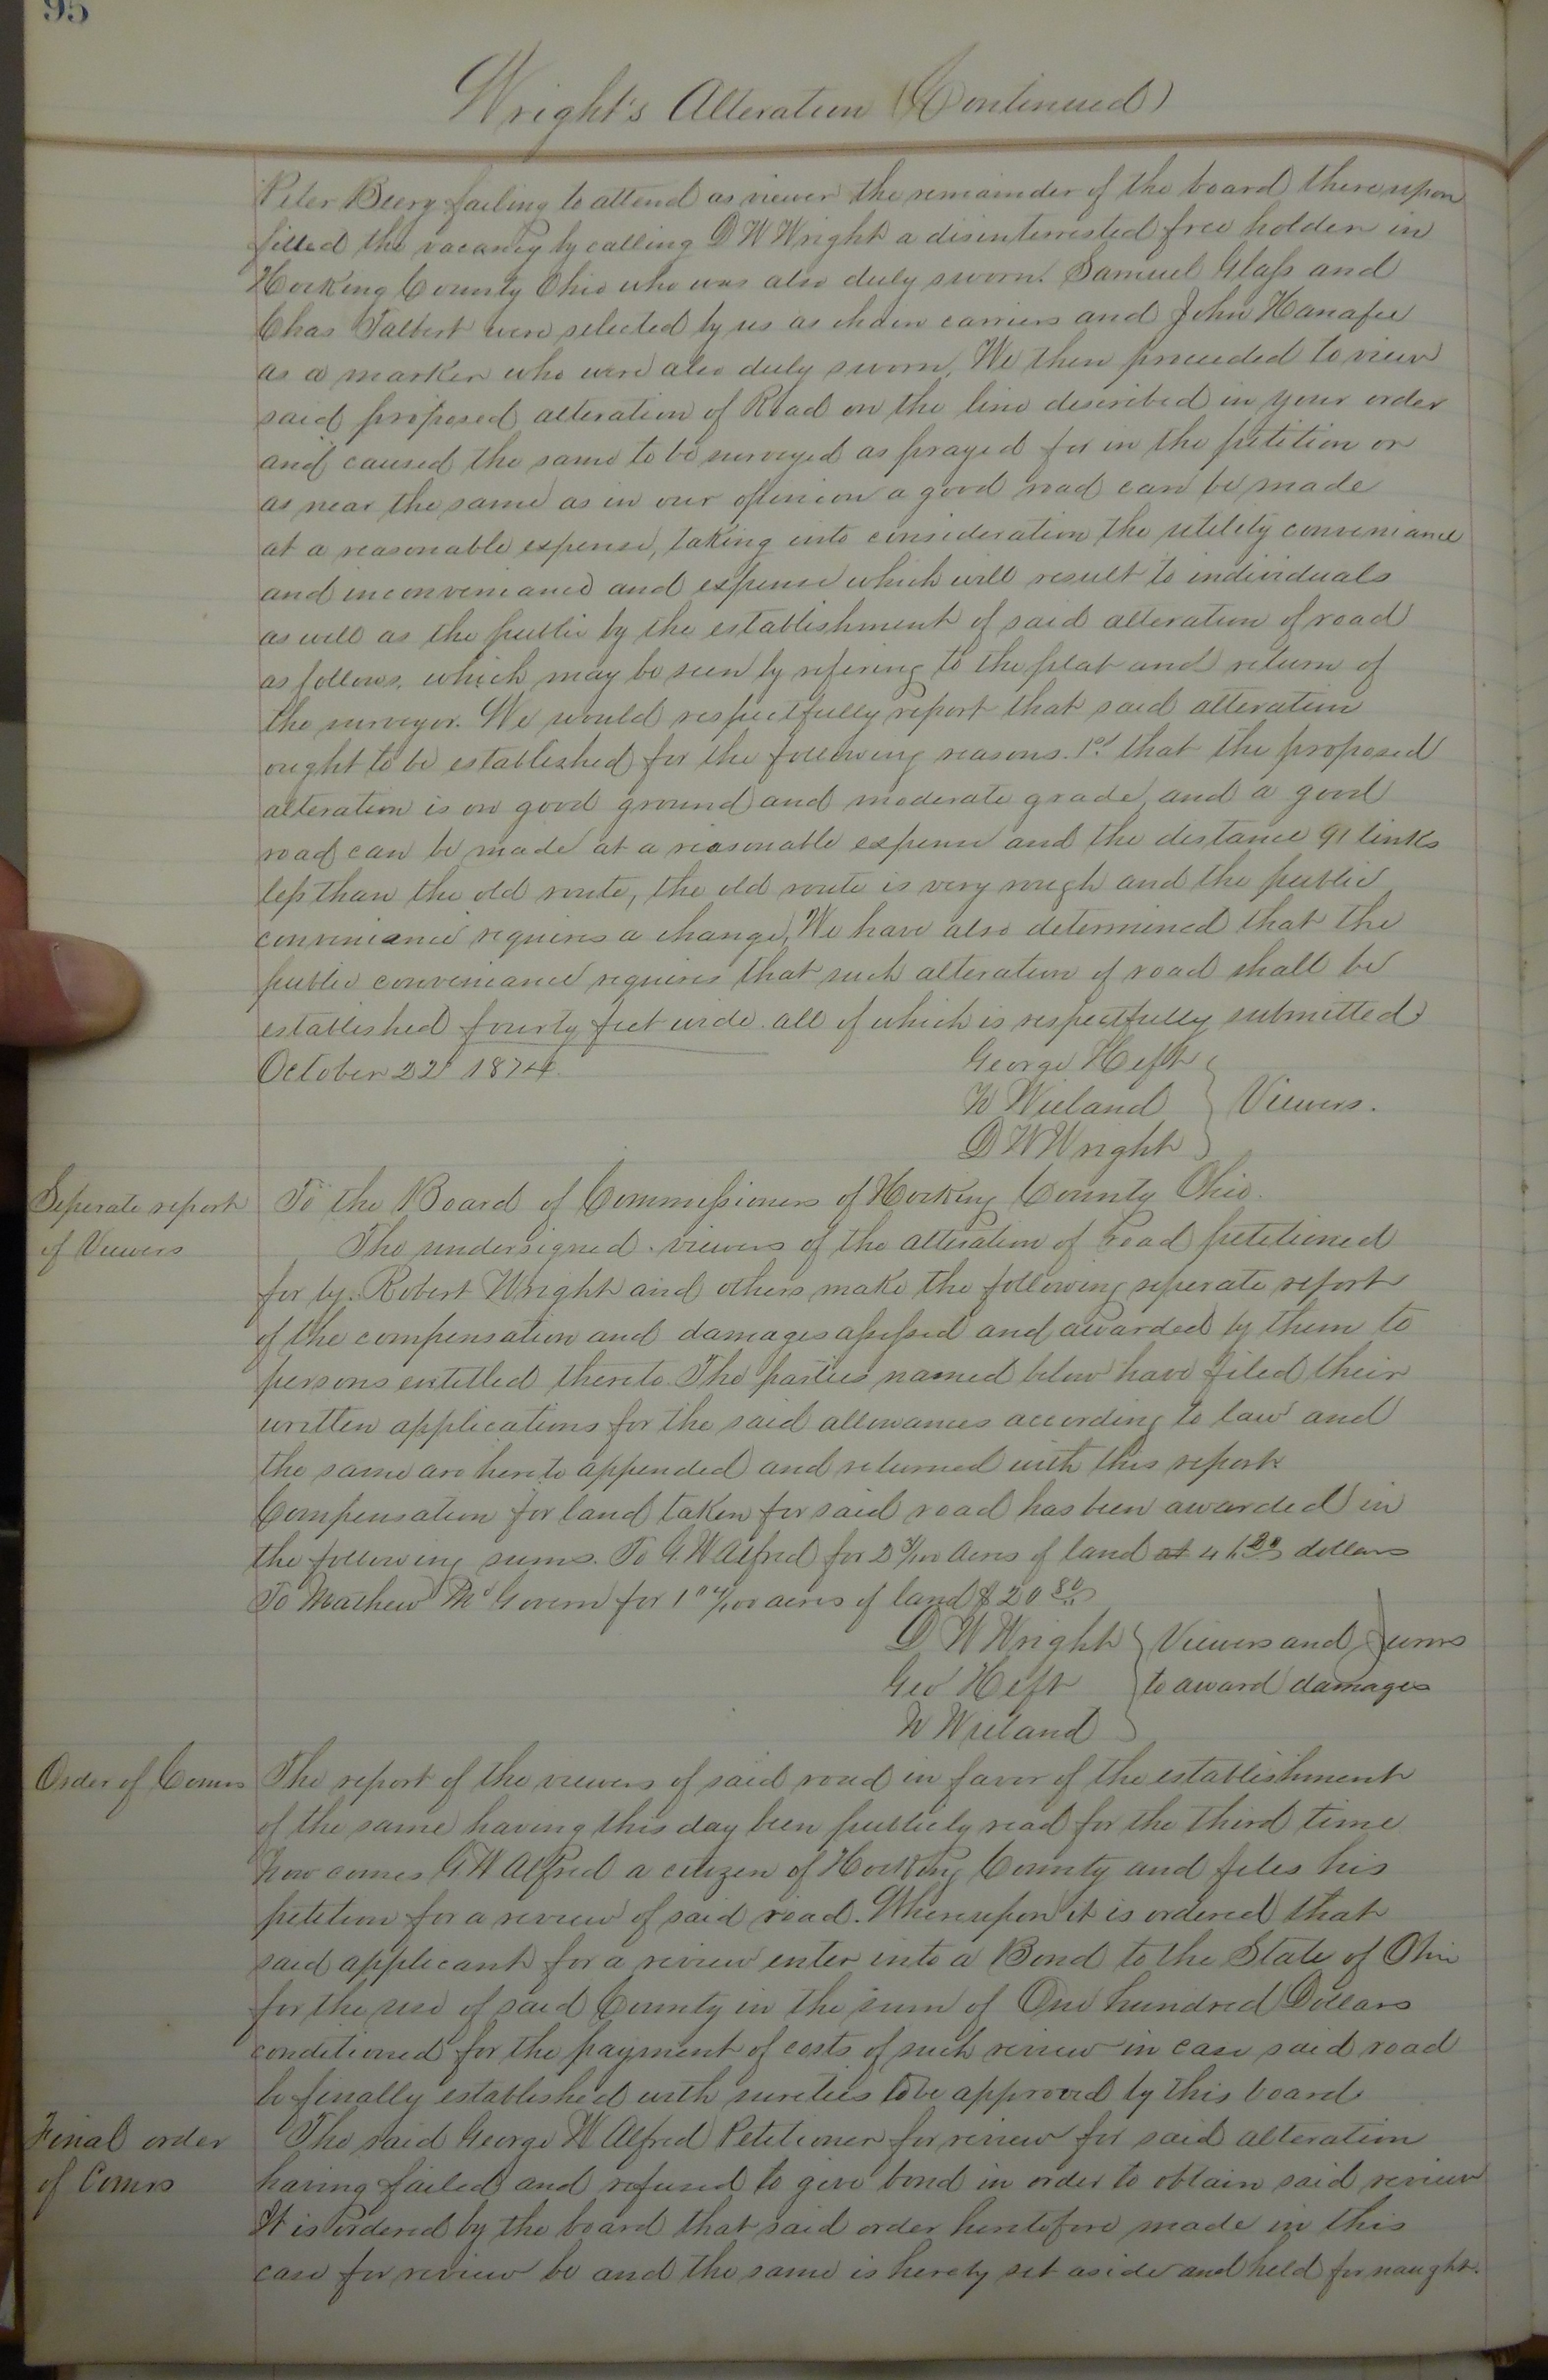 95
Wright's Alteration (Continued)
Peter Beery failing to attend as viewer the remainder of the board thereupon
filled the vacancy by calling D W Wright a disinterrested free holder in
Hocking County Ohio who was also duly sworn. Samuel Glass and
Chas Talbert were selected by us as chain carriers and John Hanafee
as a marker who were also duly sworn, We then proceeded to view
said proposed alteration of Road on the line described in your order
and caused the same to be surveyed as prayed for in the petition or
as near the same as in our opinion a good road can be made
at a reasonable expense, taking into consideration the utility conveniance
and inconveniance and expense which will result to individuals
as well as the public by the establishment of said alteration of road
as follows, which may be seen by refering to the plat and return of
the surveyor. We would respectfully report that said alteration
ought to be established for the following reasons. 1st that the proposed
alteration is on good ground and moderate grade, and a good
road can be made at a reasonable expense and the distance 91 links
less than the old route, the old route is very rough and the public
conveniance requires a change, We have also determined that the
public conveniance requires that such alteration of road shall be
established fourty feet wide. all of which is respectfully submitted
October 22d 1874
George Heft
W Wieland } Viewers.
D W Wright
Seperate report
of Viewers
To the Board of Commissioners of Hocking County Ohio.
The undersigned viewers of the alteration of road petitioned
for by Robert Wright and others make the following seperate report
of the compensation and damages assessed and awarded by them to
persons entitled thereto. The parties named below have filed their
written applications for the said allowances according to law and
the same are hereto appended and returned with this report.
Compensation for land taken for said road has been awarded in
the following sums. To G. W Alfred for 2 /100 Acres of land at dollars
To Mathew McGovern for 1 04/100 acres of land $20 80
D W Wright } Viewers and Jurors
Geo Heft } to award damages
W Wieland
Order of Comrs
The report of the viewers of said road in favor of the establishment
of the same having this day been publicly read for the third time
now comes G. W Alfred a citizen of Hocking County and files his
petition for a review of said road. Whereupon it is ordered that
said applicant for a review enter into a Bond to the State of Ohio
for the use of said County in the sum of One hundred Dollars
conditioned for the payment of costs of such review in case said road
be finally established with sureties to be approved by this board.
Final order
of Comrs
The said George W Alfred Petitioner for review for said alteration
having failed and refused to give bond in order to obtain said review
It is ordered by the board that said order heretofore made in this
case for review be and the same is hereby set aside and held for naught.